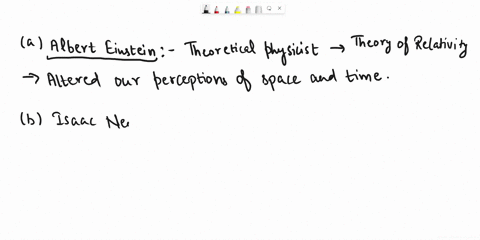 (a) Albert Einstein :- Theoretical physicist → Theory of Relativity
→ Altered our perceptions of space and time.
(b) Isaac Ne